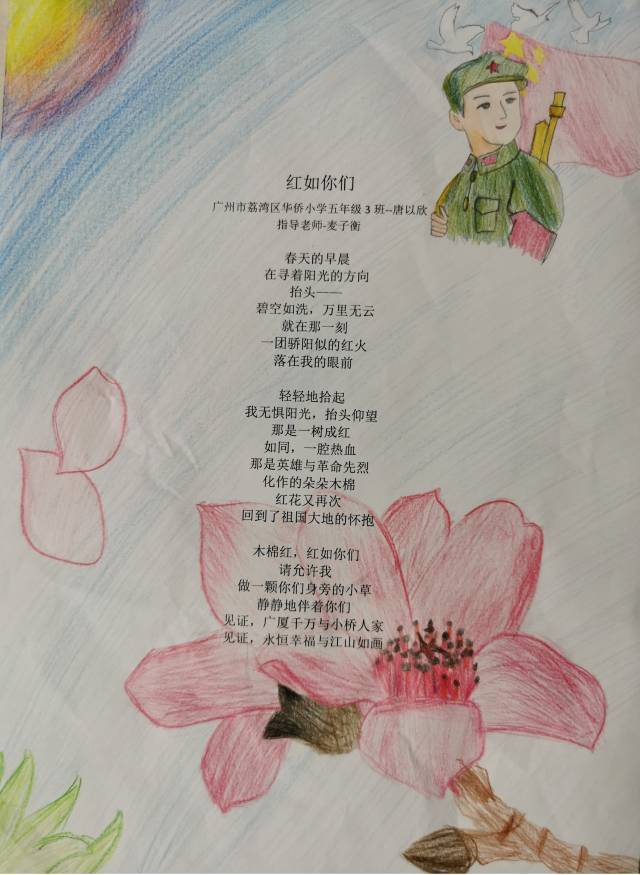 红如你们
广州市荔湾区华侨小学五年级 3 班--唐以欣
指导老师-麦子衡
春天的早晨
在寻着阳光的方向
抬头——
碧空如洗，万里无云
就在那一刻
一团骄阳似的红火
落在我的眼前
轻轻地拾起
我无惧阳光，抬头仰望
那是一树成红
如同，一腔热血
那是英雄与革命先烈
化作的朵朵木棉
红花又再次
回到了祖国大地的怀抱
木棉红，红如你们
请允许我
做一颗你们身旁的小草
静静地伴着你们
见证，广厦千万与小桥人家
见证，永恒幸福与江山如画